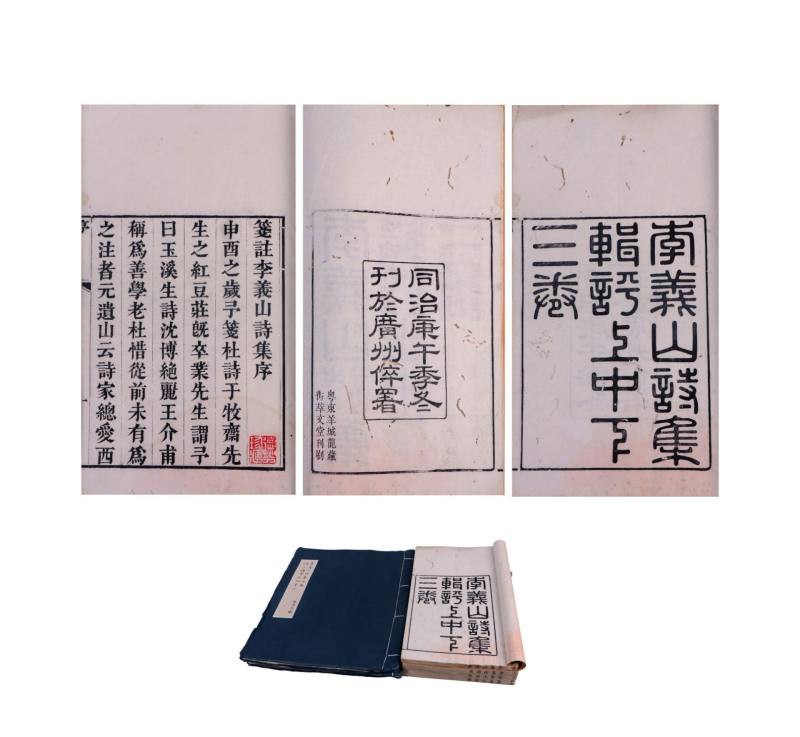 李義山詩集
輯評上中下
三卷
同治庚午季冬
刊於廣州倅署
粵東羊城龍藏
街萃文堂刊刷
箋註李義山詩集序
申酉之歲予箋杜詩于牧齋先
生之紅豆莊旣卒業先生謂予
曰玉溪生詩沈博絕麗王介甫
稱爲善學老杜惜從前未有爲
之注者元遺山云詩家總愛西
李義山詩集
輯評上中下
三卷